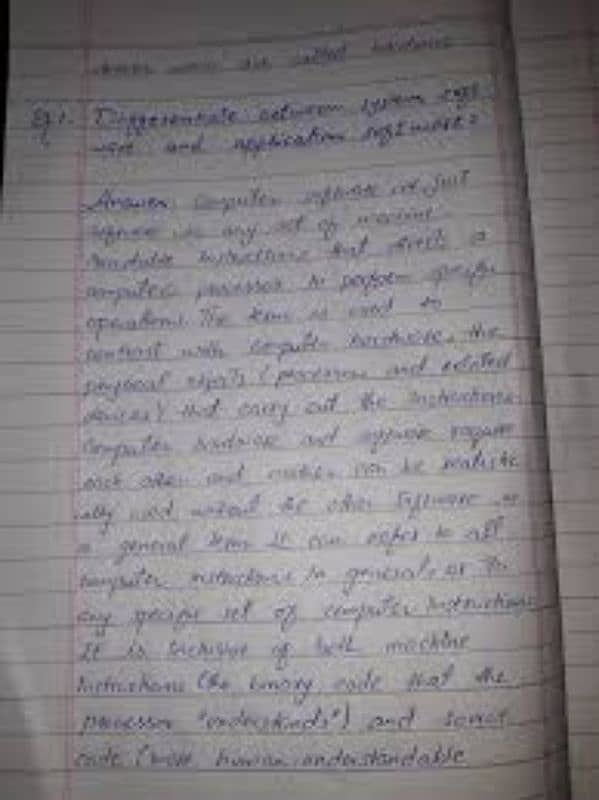 are called hardware
Differentiate between system soft
ware and application software?
Answer: Computer software or just
software is any set of machine
readable instructions that directs a
computer processor to perform specific
operations. The term is used to
contrast with computer hardware, the
physical objects (processor and related
devices) that carry out the instructions.
Computer hardware and software require
each other and neither can be realistic
ally used without the other Software is
a general term It can refer to all
computer instructions in general, or to
any specific set of computer instructions
It is inclusive of both machine
instructions (the binary code that the
processor "understands") and source
code (more human understandable